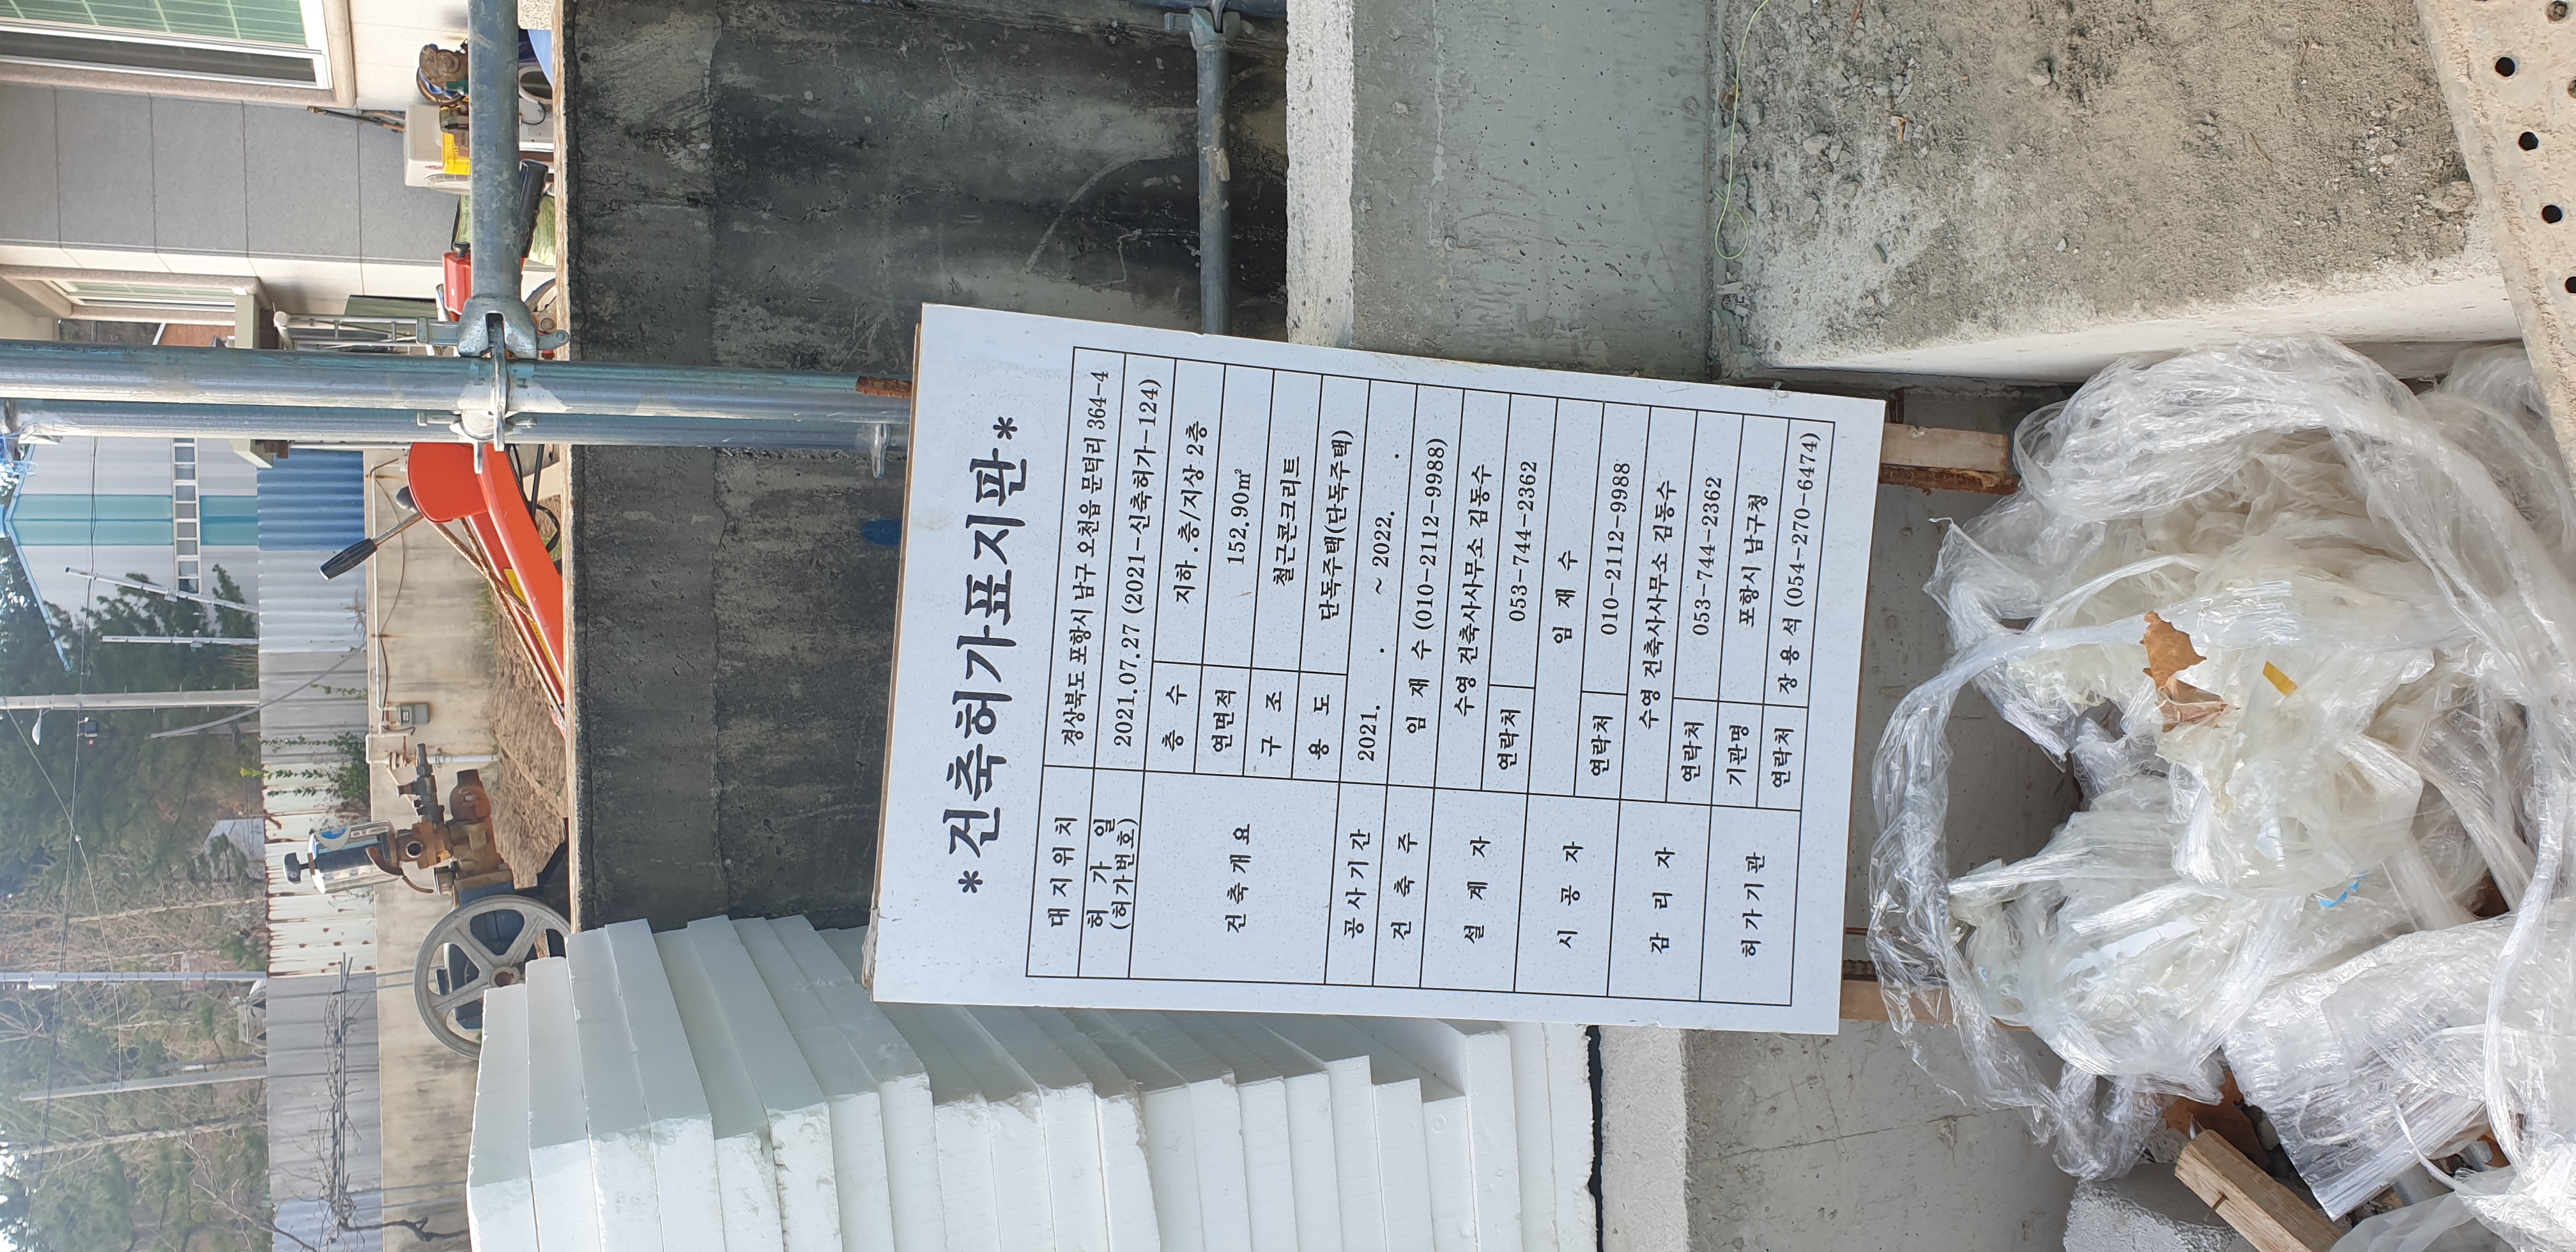 *건축허가표지판*
대지위치 경상북도 포항시 남구 오천읍 문덕리 364-4
허가일 (허가번호) 2021.07.27 (2021-신축허가-124)
건축개요 층수 지하 .층/지상 2층
연면적 152.90㎡
구조 철근콘크리트
용도 단독주택(단독주택)
공사기간 2021. . ~ 2022. .
건축주 임재수 (010-2112-9988)
설계자 수영 건축사사무소 김동수
연락처 053-744-2362
시공자 임재수
연락처 010-2112-9988
감리자 수영 건축사사무소 김동수
연락처 053-744-2362
허가기관 기관명 포항시 남구청
연락처 장용석 (054-270-6474)